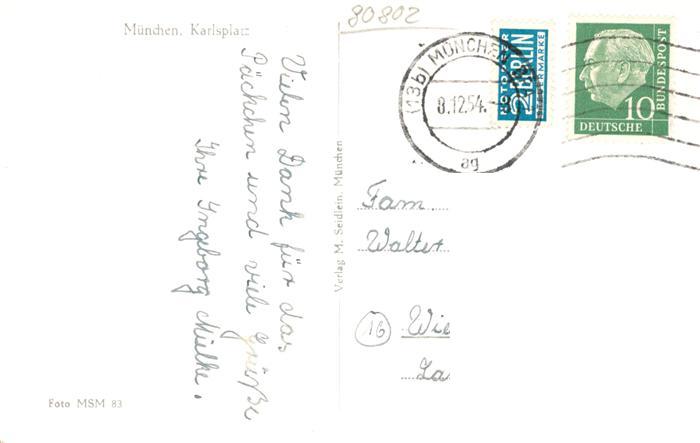 München, Karlsplatz
Vielen Dank für das
Päckchen und viele Grüße
Ihre Ingeborg Mülke.
Foto MSM 83
Verlag M. Seidlein, München
80802
(13b) MÜNCHEN
8.12.54.-
ag
NOTOPFER
2 BERLIN
STEUERMARKE
10
DEUTSCHE
BUNDESPOST
Fam.
Walter
16 Wie
La